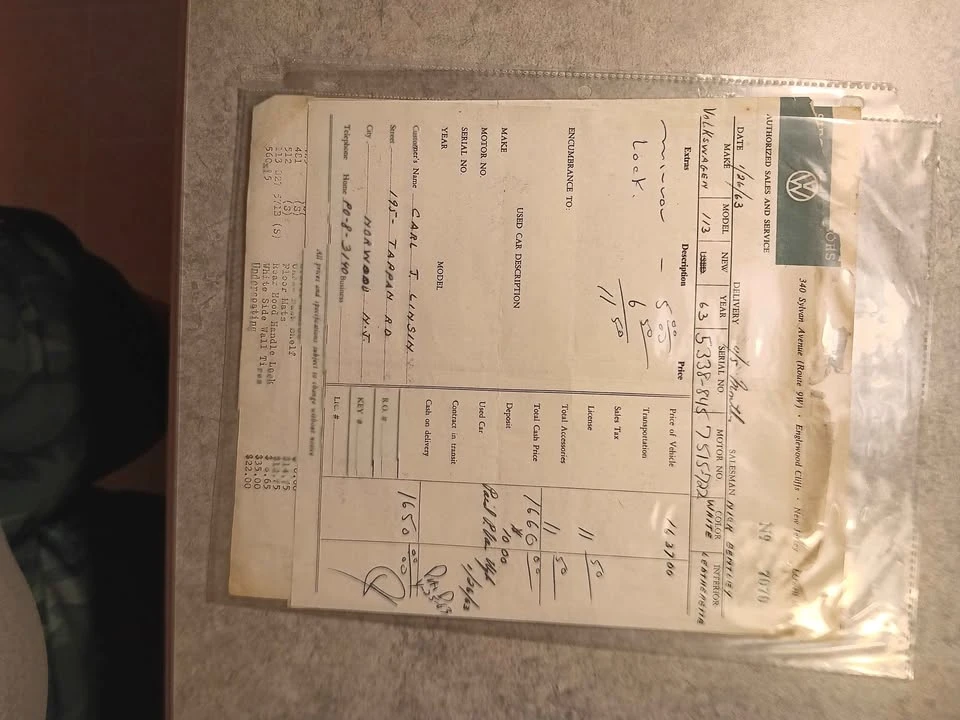 AUTHORIZED SALES AND SERVICE
340 Sylvan Avenue (Route 9W) • Englewood Cliffs • New Jersey
No 7070
DATE 1/26/63 DELIVERY SALESMAN DICK BENTLEY
MAKE MODEL NEW YEAR SERIAL NO. MOTOR NO. COLOR INTERIOR
VOLKSWAGEN 113 63 5338-845 7515722 WHITE LEATHERETTE
Extras Description Price
mirror – 5.00
Lock. 6 50
11 50
ENCUMBRANCE TO:
USED CAR DESCRIPTION
MAKE
MOTOR NO.
SERIAL NO.
YEAR MODEL
Customer's Name CARL J. LINSIN
Street 195- TAPPAN RD
City NORWOOD N.J.
Telephone Home PO-8-3140 Business
Price of Vehicle 1637 00
Transportation
Sales Tax
License 11 50
Total Accessories 11 50
Total Cash Price 1660 00
Deposit 10 00
Used Car
Contract in transit
Cash on delivery 1650 00
R.O. #
KEY #
LIC. #
All prices and specifications subject to change without notice
401 (S) Under Dash Shelf
512 (S) Floor Mats
113 827 571B (S) Rear Hood Handle Lock
560x15 White Side Wall Tires $35.00
Undercoating $22.00